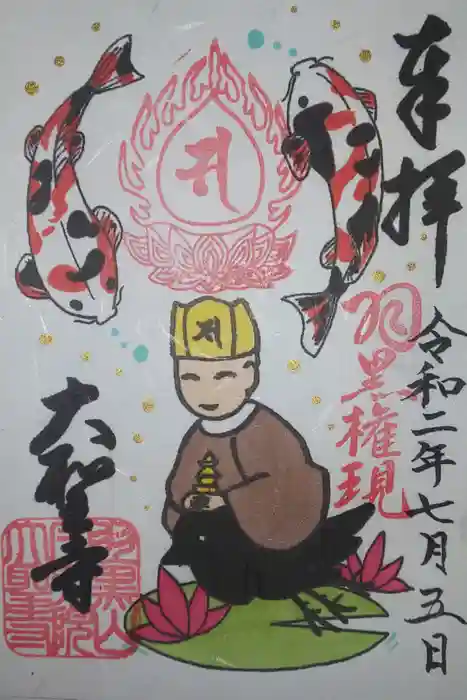 奉拝
令和二年七月五日
羽黒権現
大聖寺
羽黒山
大聖寺